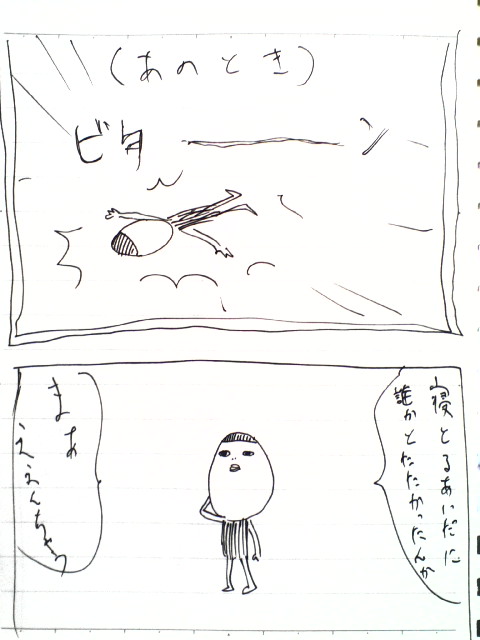 (あのとき)
ビターーーン
寝とるあいだに
誰かとたたかったんか
まあ
ええんちゃう